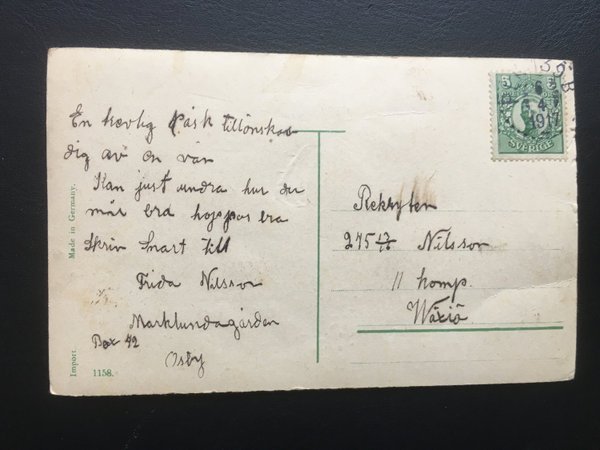 En trevlig Påsk tillönskas
dig av en vän
Kan just undra hur du
mår bra hoppas bra
Skriv snart till
Frida Nilsson
Marklundagården
Box 42
Osby
Made in Germany.
Import
1158.
5
6 4
1917
SVERIGE
Rekryten
275 13/16 Nilsson
11 komp.
Wäxiö